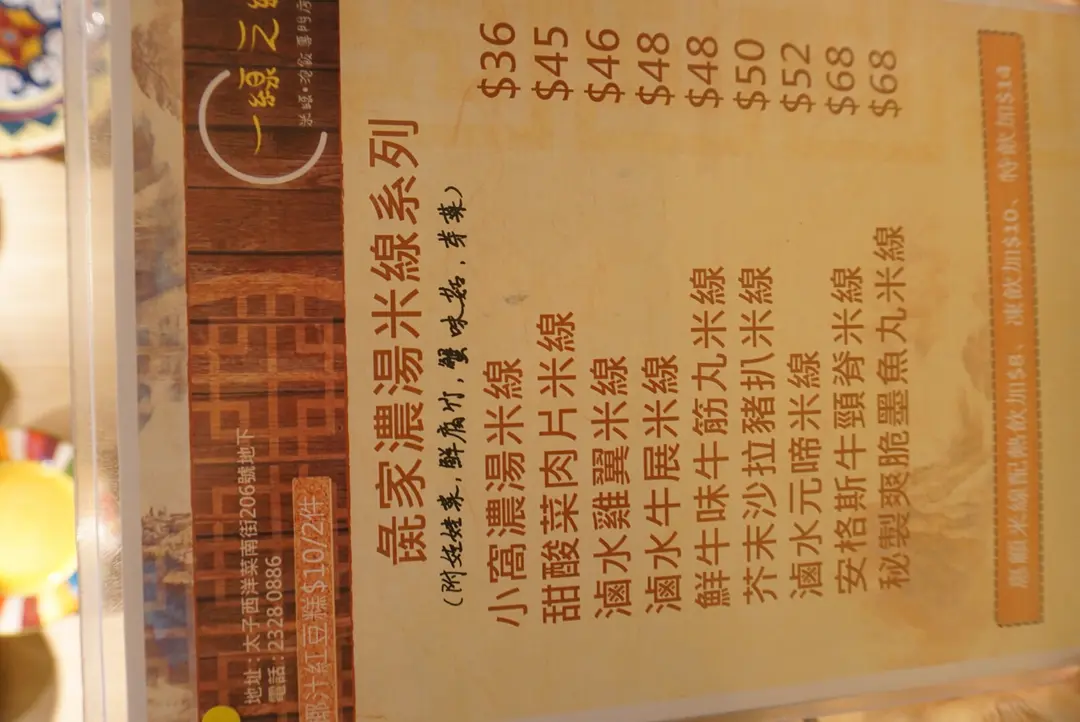 一線之
米線•砂鍋專門店
地址:太子西洋菜南街206號地下
電話:2328 0886
椰汁紅豆糕$10/2件
毳家濃湯米線系列
(附娃娃菜,鮮腐竹,蟹味菇,芽菜)
小窩濃湯米線 $36
甜酸菜肉片米線 $45
滷水雞翼米線 $46
滷水牛展米線 $48
鮮牛味牛筋丸米線 $48
芥末沙拉豬扒米線 $50
滷水元啼米線 $52
安格斯牛頸脊米線 $68
秘製爽脆墨魚丸米線 $68
惠顧米線配熱飲加$8、凍飲加$10、特飲加$14